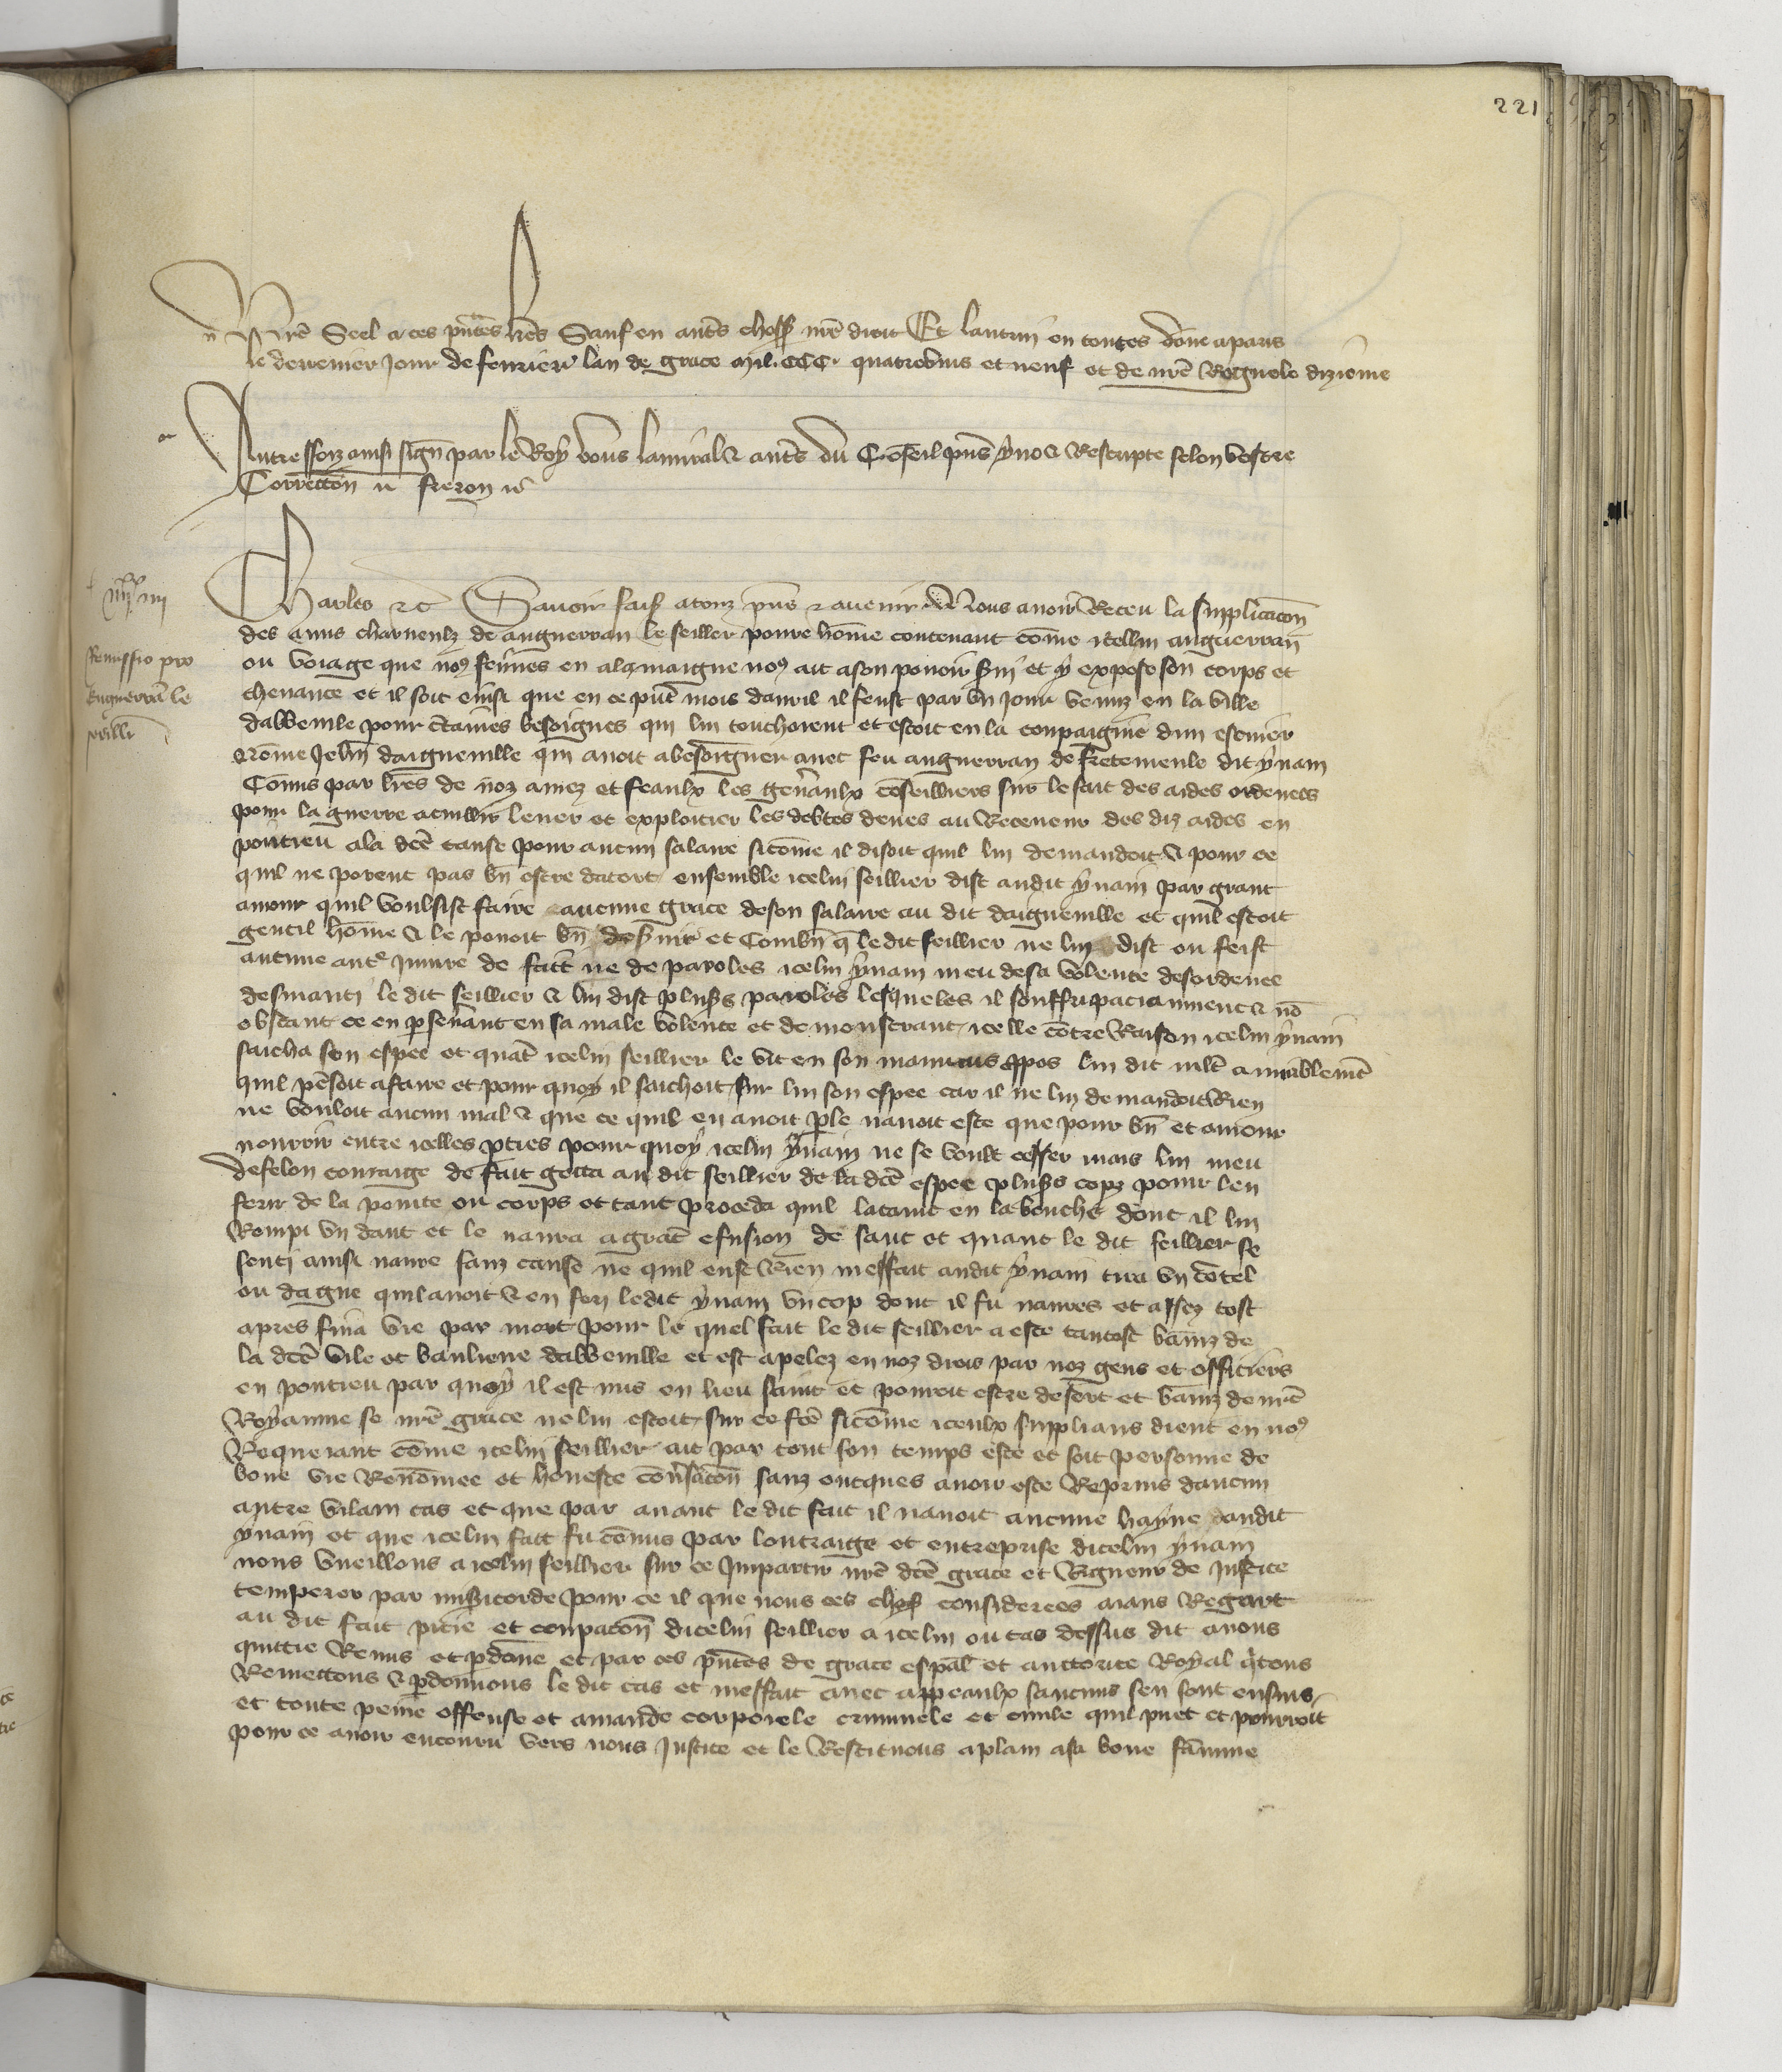 221
Nr̃e Seel a ces pñtes lr̃es Sauf en autr̃s choses nr̃e droit Et lautrui en toutes don̄e a paris
le derrenier jour de feurier lan de grace mil. CCC. quatrevins et neuf et de nr̃e Regne le diziéme
Autressoiz ainsi sign̄ par le Roy vous lamiral & autr̃s du Cōseil pñs yuo & Rescripte selon vostre
Correccōn freron
Charles &c̃ Sauoir fais̃ a touz pñs & auenir Nous auoir Receu la supplicacōn
iiijxx iiij
des amis charnelz de anguerran le seillier poure hōme contenant cōme icellui anguerran
Remissio pro
ou voiage que noꝯ feimes en alemaigne noꝯ ait a son pouoir s̃ui et y expose son corps et
Enguerrã le
cheuance et il soit einsi que en ce pñt mois dauril il feust par un jour venuz en la ville
seillr̃
dabbeuile pour c̃taines besoignes qui lui touchoient et estoit en la compaignie dun escuier
nōme Jehñ daigueuille qui auoit a besoigner auec feu anguerran de fretemeule dit ynam
Cōmis par lr̃es de noz amez et feaulx les gen̄aulx cōseilliers sur le fait des aides ordenees
pour la guerre a cuillir leuer et exploitier les debtes deues au Receueur des diz aides en
pontieu a la dc̃e cause pour aucun salaire sicōme il disoit quil lui demandoit & pour ce
quil ne porent pas bñ estre dacort ensemble icelui seillier dist audit ynam par grant
amour quil voulsist faire aucune grace de son salaire au dit daigueuille et quil estoit
gentil hōme & le pouoit bñ des̃uir et Combñ q̃ ledit seillier ne luy dist ou feist
aucune autr̃ jniure de fait ne de paroles icelui ynam meu de sa volente desordenee
desmanti le dit seillier & lui dist plus̃s paroles lesqueles il souffri paciamment & nō
obstant ce en p̃seũant en sa male volente et demonstrant icelle cōtre Raison icelui ynam
saicha son espee et quãt icelui seillier le vit en son mauuais p̃pos lui dit ml̃t amiablemẽt
quil pẽsoit a faire et pour quoy il saichoit sur lui son espee car il ne luy demandoit Rien
ne vouloit aucun mal & que ce quil en auoit p̃le nauoit este que pour bñ et amour
nourrir entre icelles p̃ties pour quoy icelui ynam ne se voult cesser mais lui meu
de felon couraige de fait getta au dit seillier de la dc̃e espee plus̃s copz pour len
ferir de la pointe ou corps et tant proceda quil lataint en la bouche dont il lui
Rompi un dant et le naura a grãt efusion de sanc et quant le dit seillier se
senti ainsi naure sanz cause ne quil eust Rien meffait audit ynam tira un cõtel
ou dague quil auoit & en feri ledit ynam un cop dont il fu naurez et assez tost
apres fina vie par mort pour le quel fait le dit seillier a este tantost bãniz de
la dc̃e vile et banlieue dabbeuille et est apelez en noz drois par noz gens et officiers
en pontieu par quoy il est mis en lieu saint et pouroit estre desert et bãniz de nr̃e
Royaume se nr̃e grace ne lui estoit sur ce fc̃e sicōme iceulx supplians dient en noꝯ
Requerant cōme icelui seillier ait par tout son temps este et soit personne de
bone vie Renōmee et honeste conũsacōn sanz oncques auoir este Reprins daucun
autre vilain cas et que par auant le dit fait il nauoit aucune hayne audit
ynam et que icelui fait fu cōmis par loutraige et entreprise dicelui ynam
nous vueillons a icelui seillier sur ce Jmpartir nr̃e dc̃e grace et Rigueur de Justice
temperer par mis̃icorde pour ce il que nous ces choses considerees aians Regart
au dit fait pitie et conpacōn dicelui seillier a icelui ou cas dessus dit auons
quittie Remis et p̃done et par ces pñtes de grace esp̃al et auctorite Royal q̃tons
Remettons & p̃donnons le dit cas et meffait auec appeaulx saucuns sen sont ensuis
et toute peine offense et amande corporele criminele et ciuile quil puet et pourroit
pour ce auoir encouru vers nous Justice et le Restituons a plain a sa bone fãmme